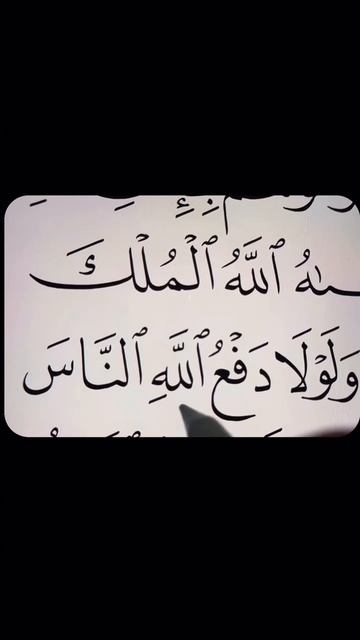 ٱللَّهُ ٱلْمُلْكَ
وَلَوْلَا دَفْعُ ٱللَّهِ ٱلنَّاسَ